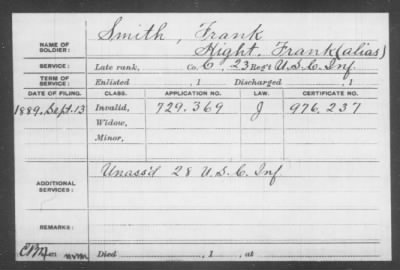 Smith, Frank
NAME OF SOLDIER: Hight, Frank (alias)
SERVICE: Late rank, Co. C, 23 Reg't U.S.C. Inf.
TERM OF SERVICE: Enlisted , 1 Discharged , 1
DATE OF FILING. CLASS. APPLICATION NO. LAW. CERTIFICATE NO.
1889. Sept. 13 Invalid, 729.369 J 976.237
Widow,
Minor,
ADDITIONAL SERVICES: Unass'd 28 U.S.C. Inf
REMARKS:
Died , 1 , at